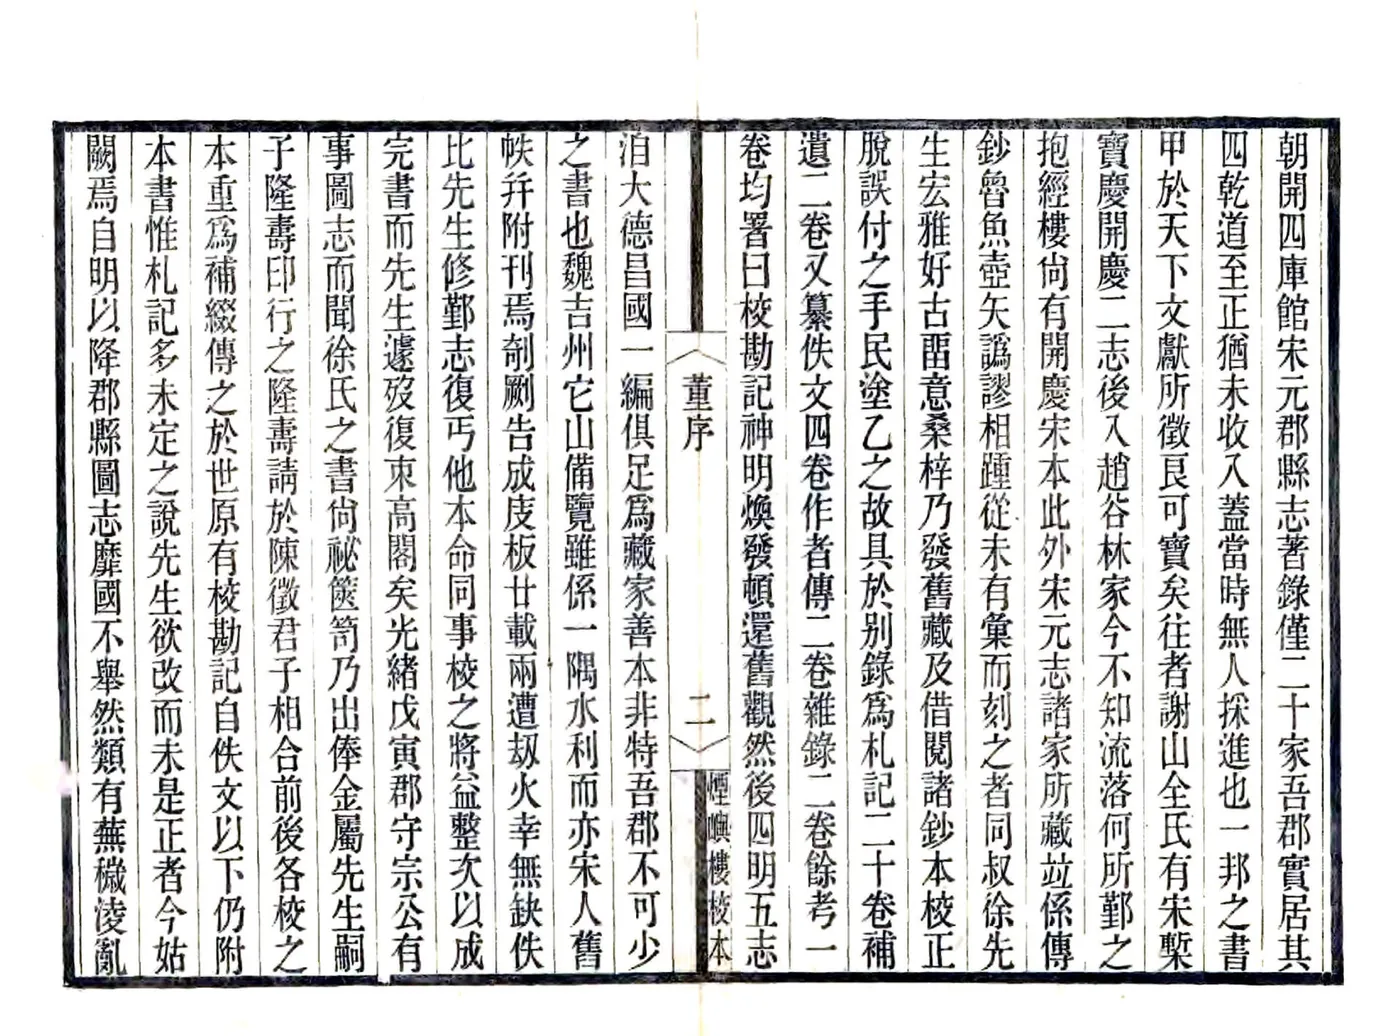 朝開四庫館宋元郡縣志著錄僅二十家吾郡實居其
四乾道至正猶未收入蓋當時無人採進也一邦之書
甲於天下文獻所徵良可寶矣往者謝山全氏有宋槧
寶慶開慶二志後入趙谷林家今不知流落何所鄞之
抱經樓尙有開慶宋本此外宋元志諸家所藏竝係傳
鈔魯魚壺矢譌謬相踵從未有彙而刻之者同叔徐先
生宏雅好古畱意桑梓乃發舊藏及借閱諸鈔本校正
脫誤付之手民塗乙之故具於別錄爲札記二十卷補
遺二卷又纂佚文四卷作者傳二卷雜錄二卷餘考一
卷均署曰校勘記神明煥發頓還舊觀然後四明五志
洎大德昌國一編俱足爲藏家善本非特吾郡不可少
之書也魏吉州它山備覽雖係一隅水利而亦宋人舊
帙幷附刊焉剞劂告成庋板廿載兩遭刼火幸無缺佚
比先生修鄞志復丐他本命同事校之將益整次以成
完書而先生遽歿復束高閣矣光緖戊寅郡守宗公有
事圖志而聞徐氏之書尙祕篋笥乃出俸金屬先生嗣
子隆壽印行之隆壽請於陳徵君子相合前後各校之
本重爲補綴傳之於世原有校勘記自佚文以下仍附
本書惟札記多未定之說先生欲改而未是正者今姑
闕焉自明以降郡縣圖志靡國不舉然類有蕪穢淩亂
董序
二
煙嶼樓校本